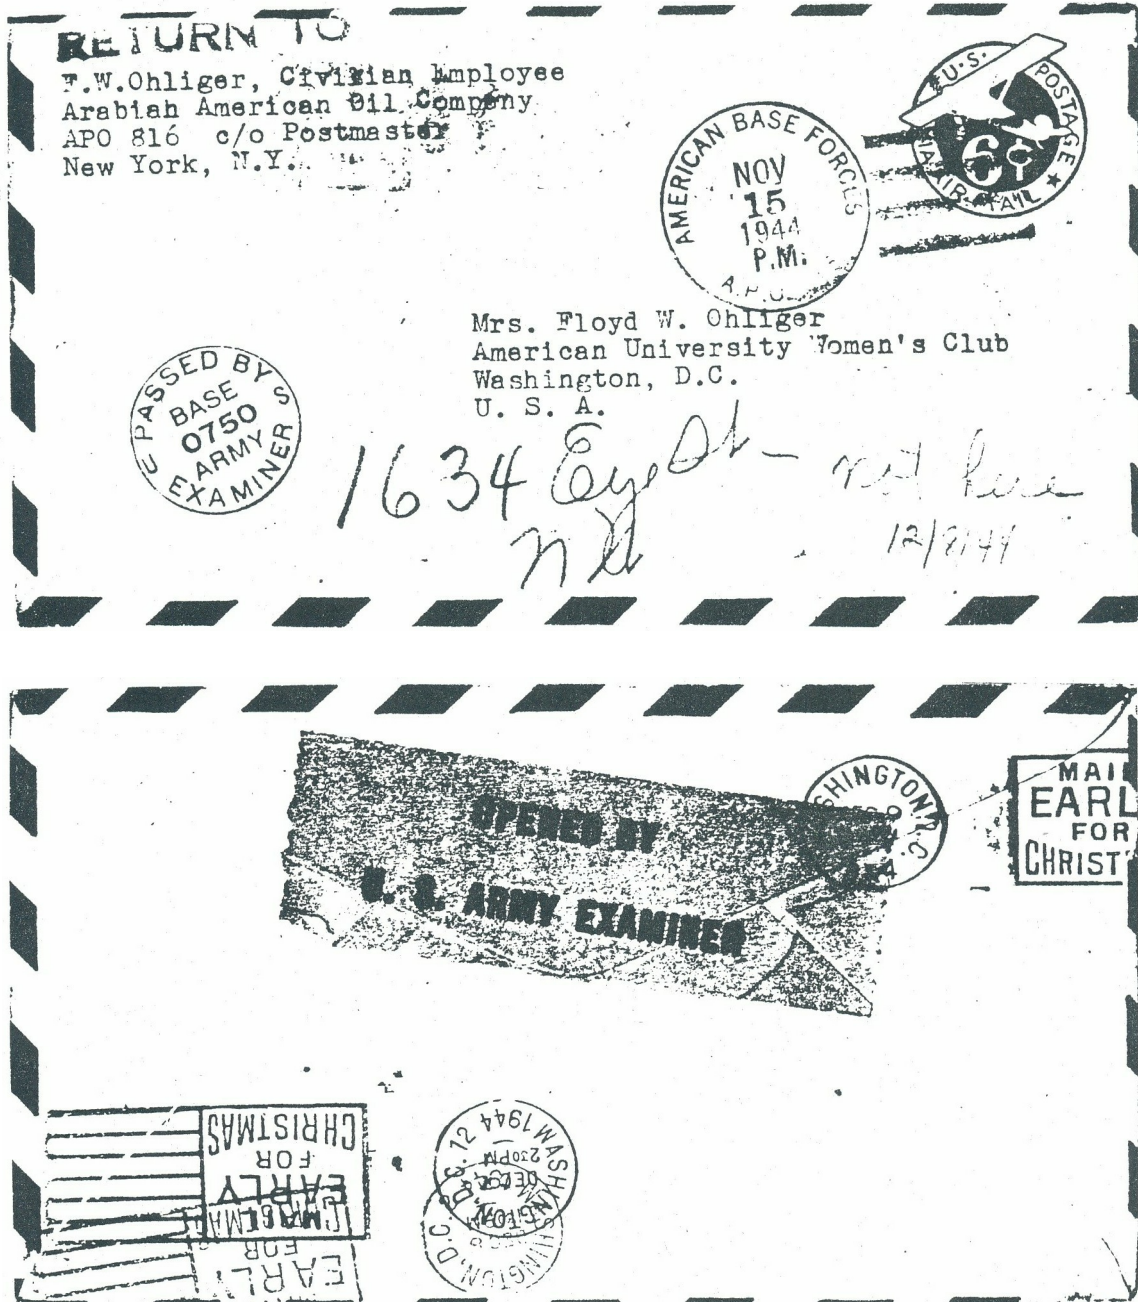 RETURN TO
F.W.Ohliger, Civilian Employee
Arabian American Oil Company
APO 816 c/o Postmaster
New York, N.Y.
U.S. POSTAGE
6¢
VIA AIR MAIL
AMERICAN BASE FORCES
NOV
15
1944
P.M.
A.P.O.
Mrs. Floyd W. Ohliger
American University Women's Club
Washington, D.C.
U. S. A.
PASSED BY
BASE
0750
ARMY
EXAMINER
1634 Eye St
NW
not here
12/8/44
OPENED BY
U. S. ARMY EXAMINER
SHINGTON, D.C.
MAI
EARL
FOR
CHRIST
MAIL
EARLY
FOR
CHRISTMAS
WASHINGTON, D.C. 12
1944
230PM
DEC
SHINGTON, D.C
FOR
EARLY